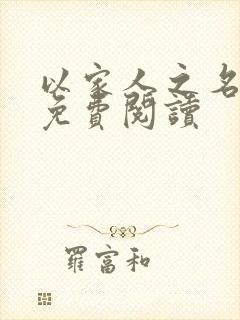 以家人之名
免費閱讀
羅富和